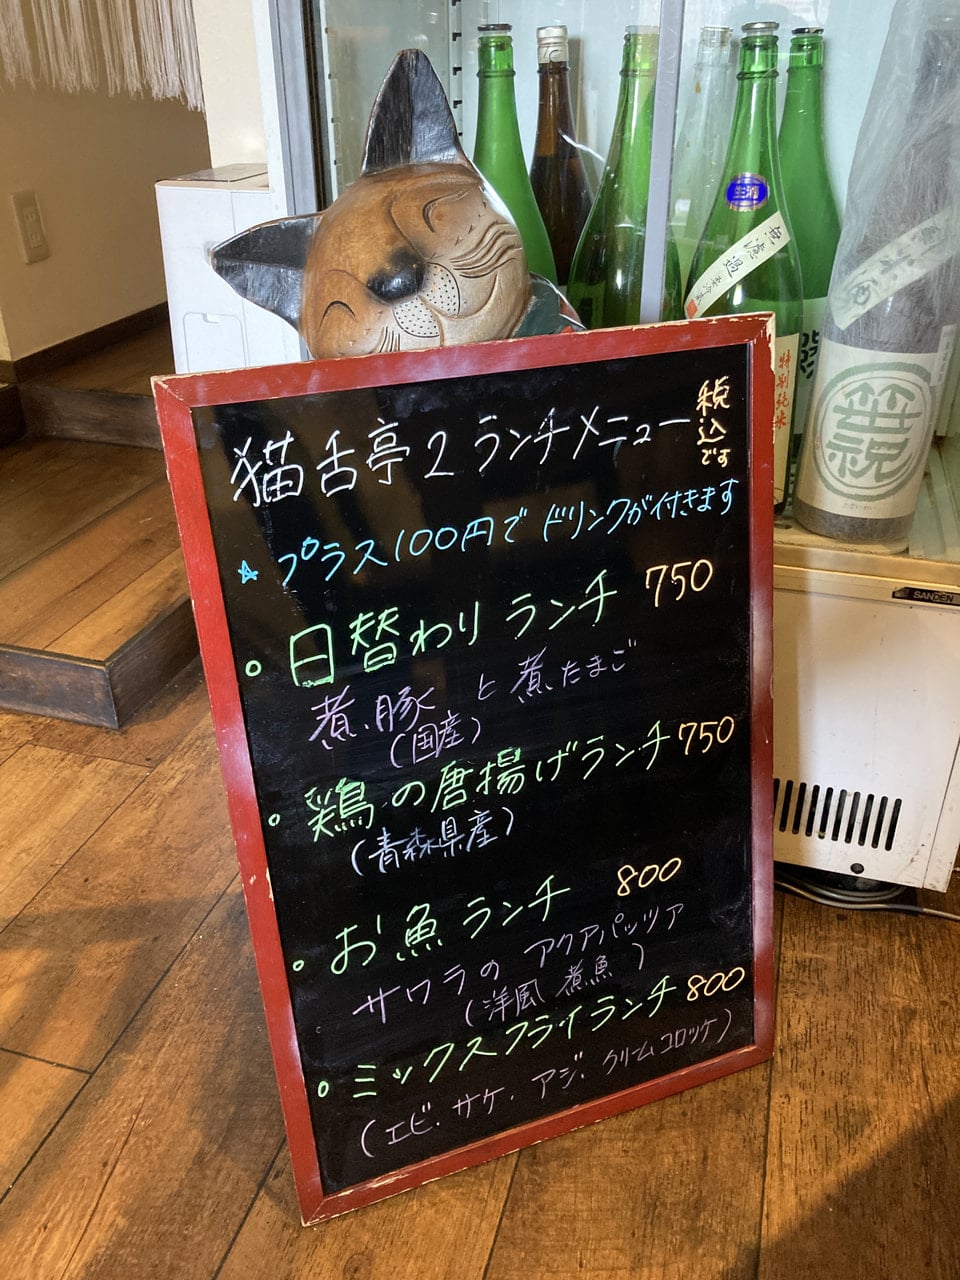 猫舌亭2 ランチメニュー
税込です
☆プラス100円でドリンクが付きます
○日替わりランチ 750
煮豚と煮たまご
(国産)
○鶏の唐揚げランチ 750
(青森県産)
○お魚ランチ 800
サワラのアクアパッツァ
(洋風煮魚)
○ミックスフライランチ 800
(エビ、サケ、アジ、クリームコロッケ)
生酒
無濾過
特別純米
SANDEN